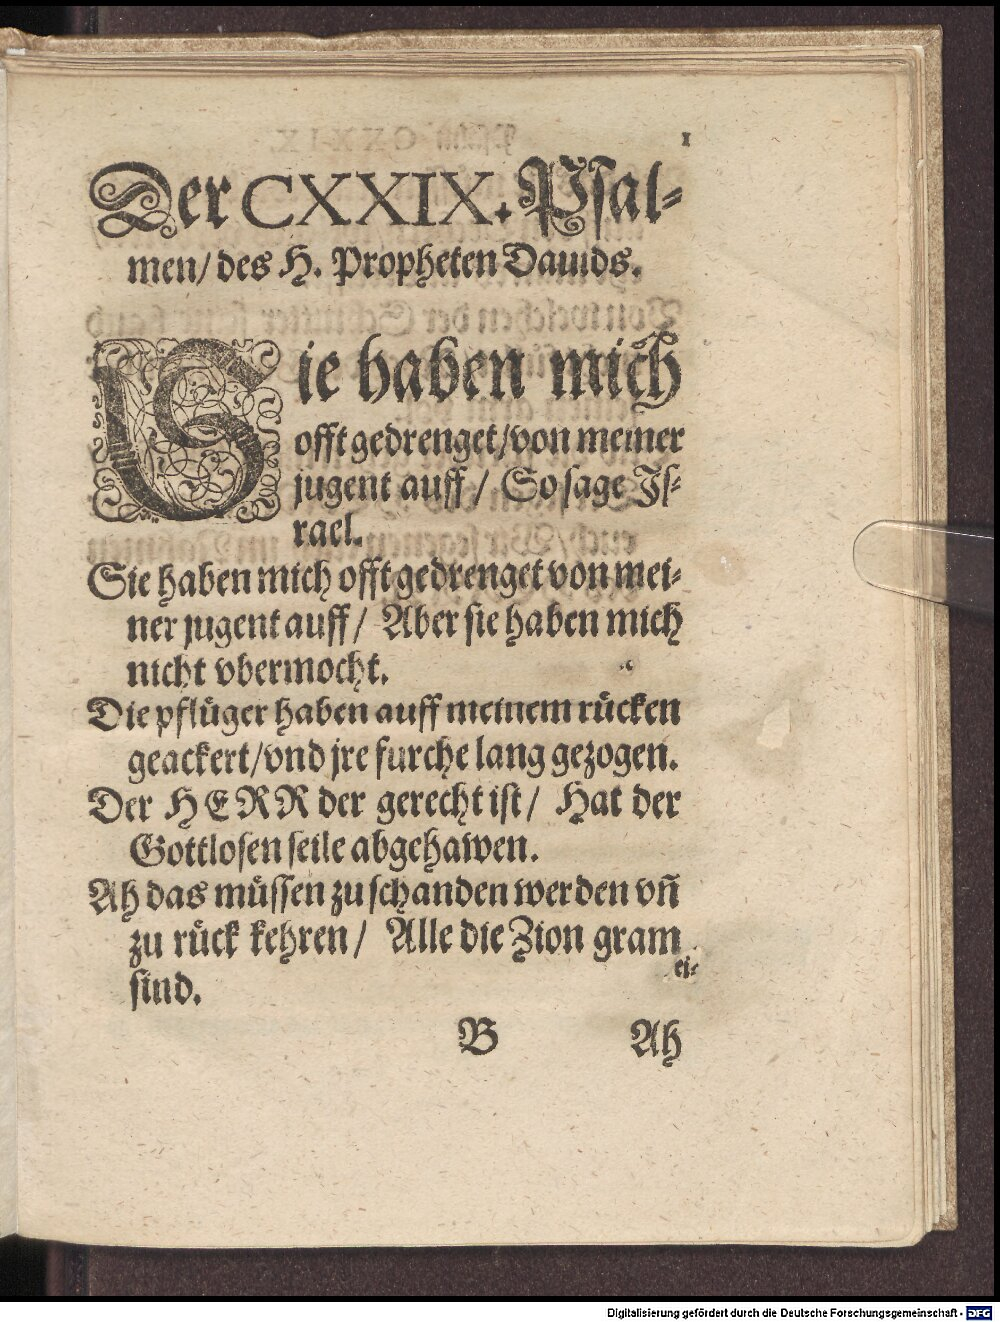 1
Der CXXIX. Psal-
men/ des H. Propheten Dauids.
Sie haben mich
offt gedrenget/von meiner
jugent auff / So sage Is-
rael.
Sie haben mich offt gedrenget von mei-
ner jugent auff/ Aber sie haben mich
nicht vbermocht.
Die pflüger haben auff meinem rücken
geackert/vnd jre furche lang gezogen.
Der HERR der gerecht ist/ Hat der
Gottlosen seile abgehawen.
Ah das müssen zu schanden werden vñ
zu rück kehren/ Alle die Zion gram
sind.
ei-
B Ah
Digitalisierung gefördert durch die Deutsche Forschungsgemeinschaft - DFG